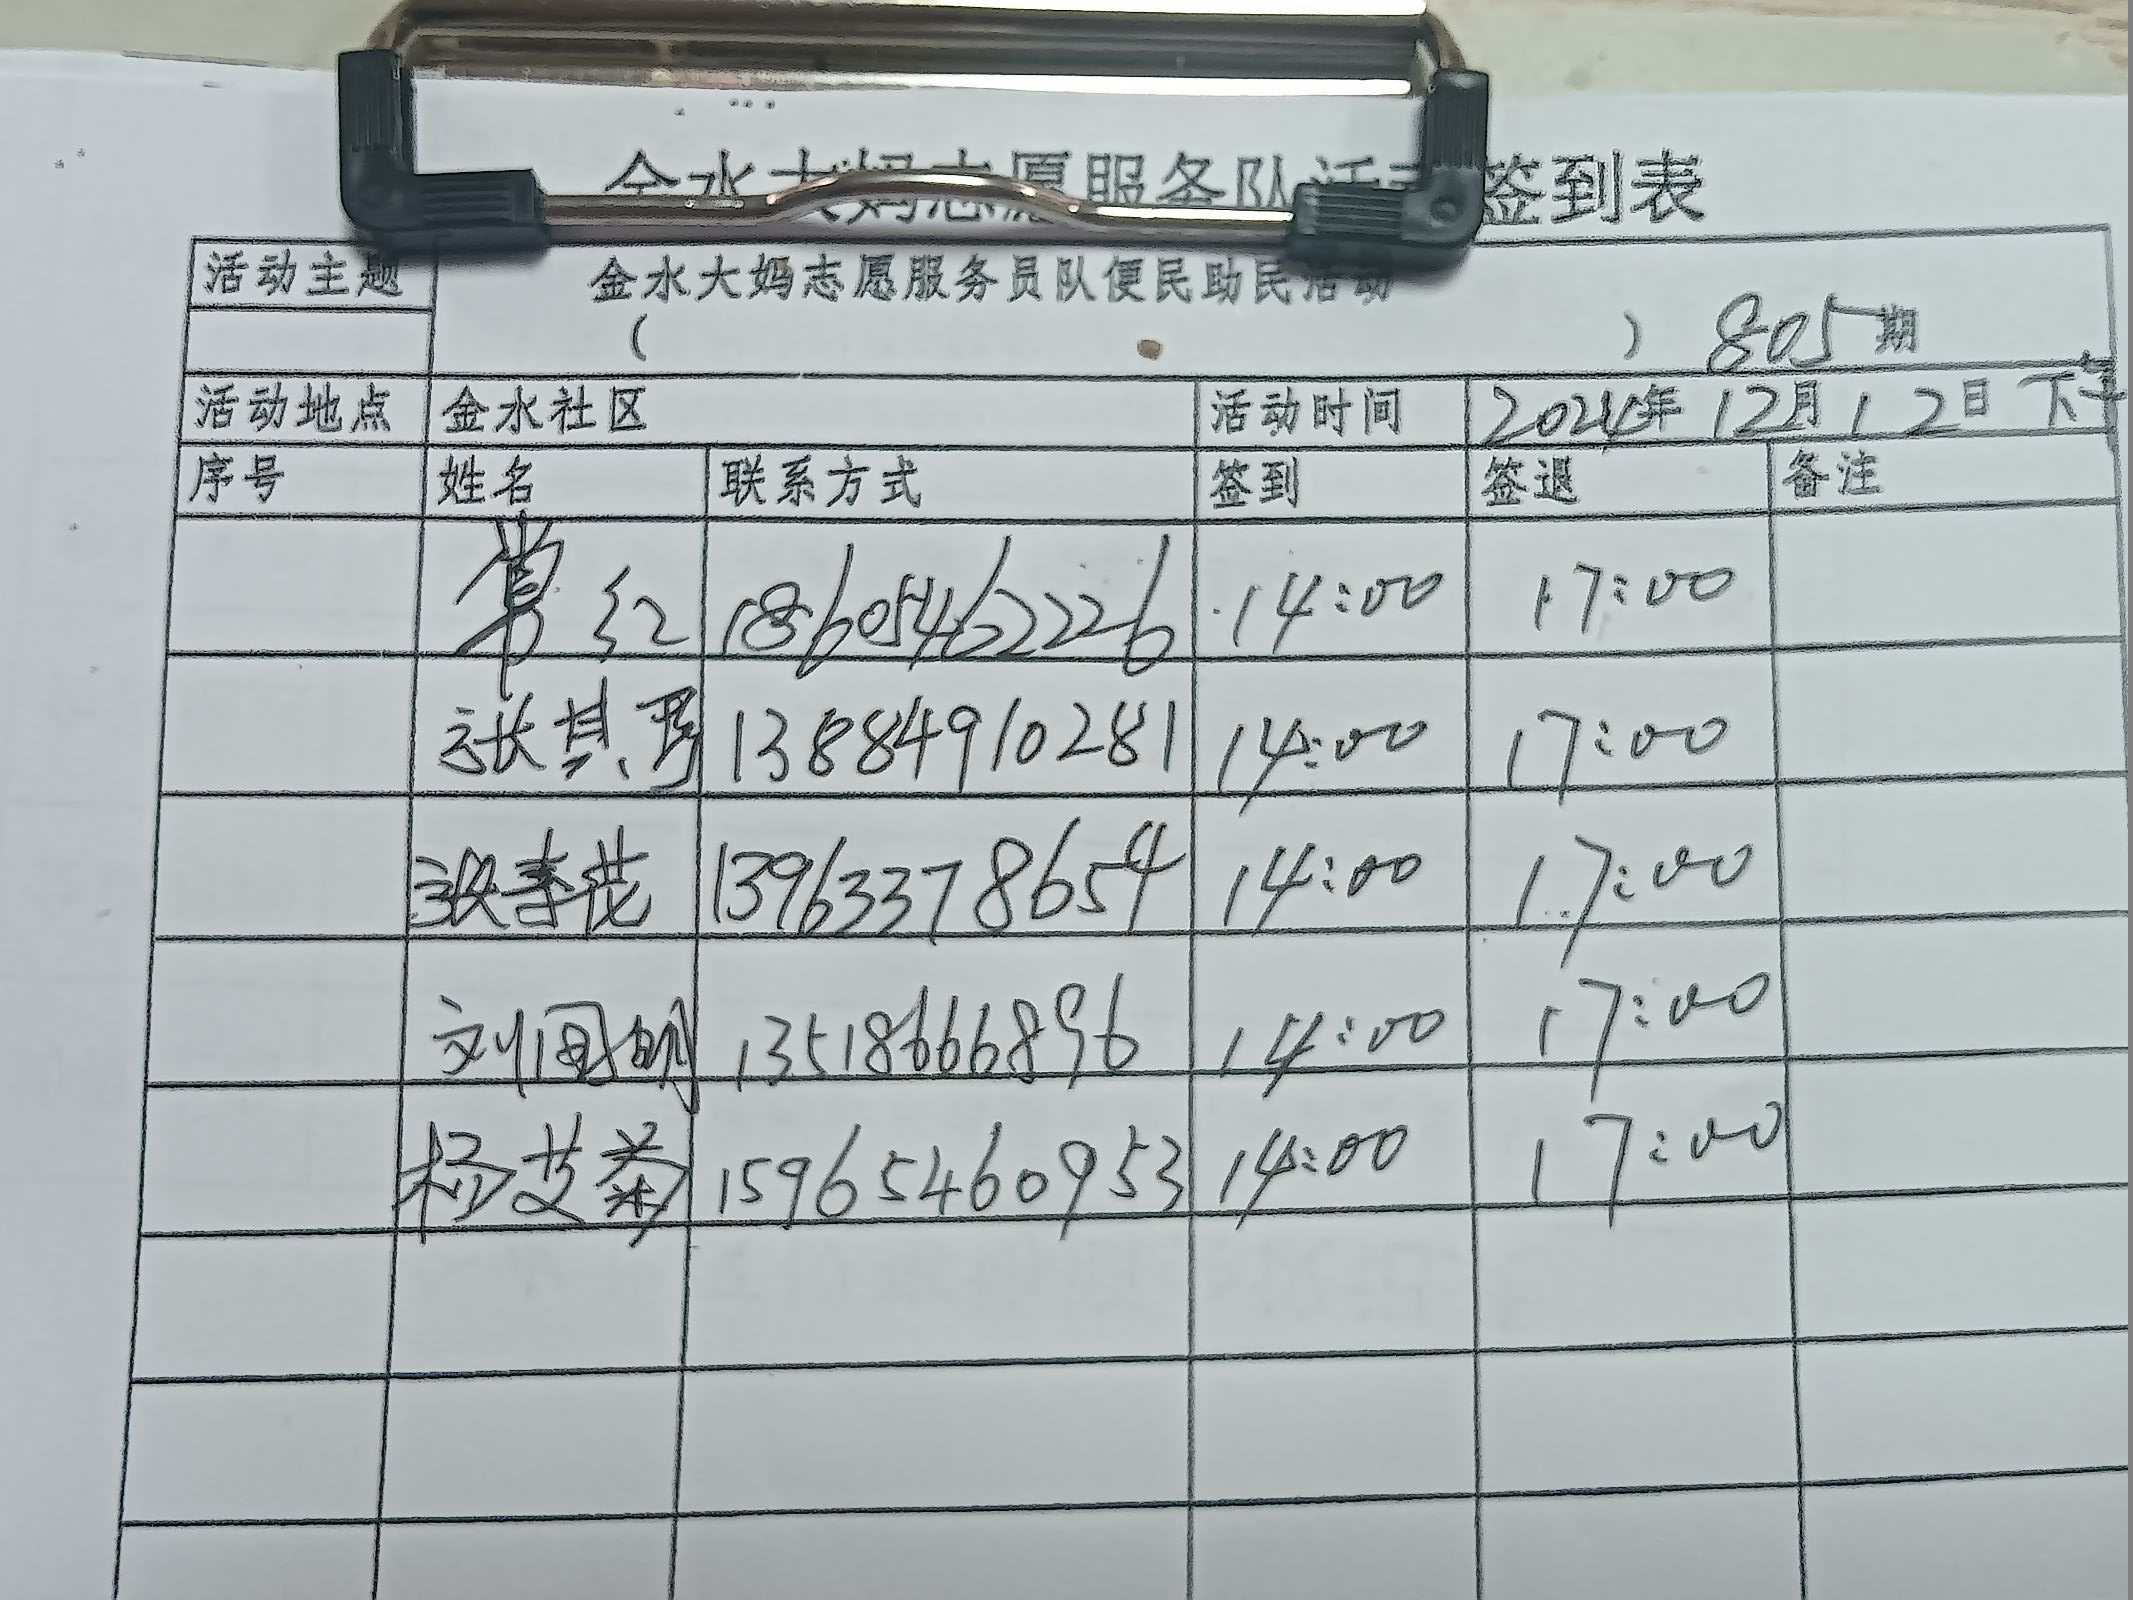 金水大妈志愿服务队活动签到表
活动主题 金水大妈志愿服务员队便民助民活动
( ) 805期
活动地点 金水社区 活动时间 2024年12月12日 下午
序号 姓名 联系方式 签到 签退 备注
常红 18605462226 14:00 17:00
张其秀 13884910281 14:00 17:00
张春花 13963378654 14:00 17:00
刘国明 13518666896 14:00 17:00
杨艾菊 15965460953 14:00 17:00